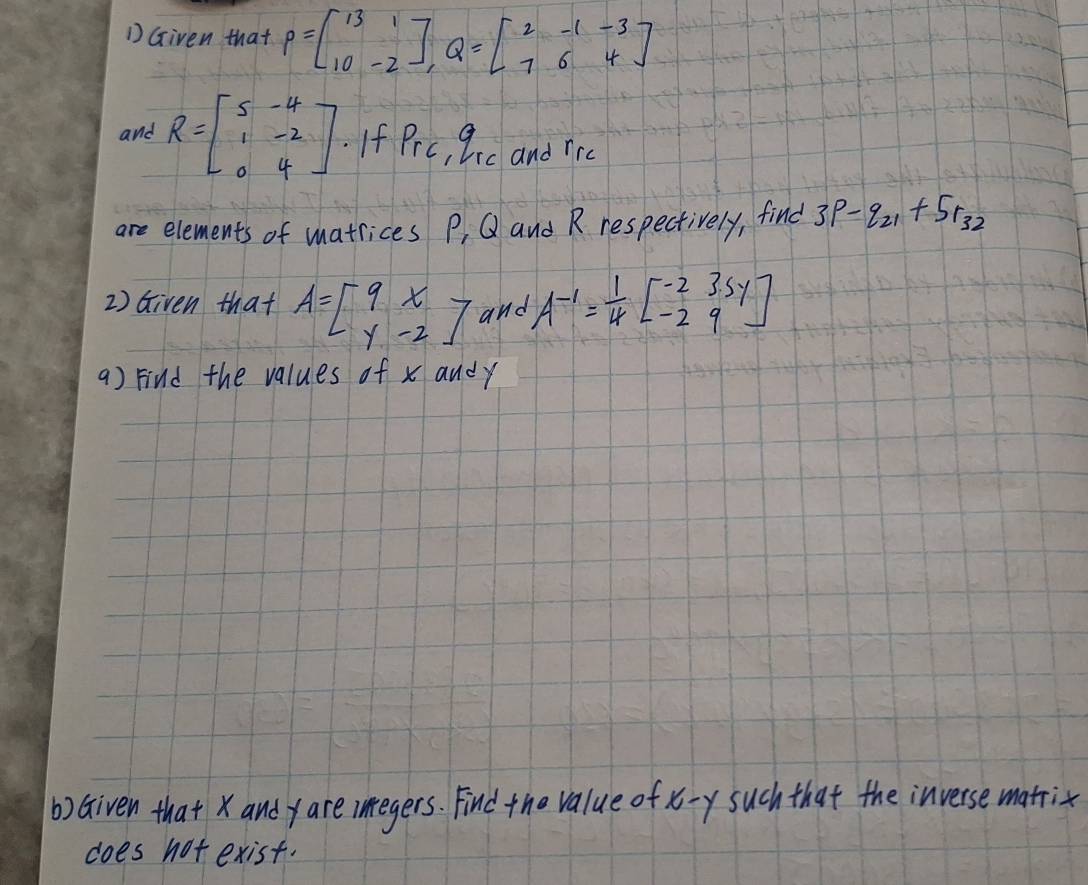 1) Given that P = [13 1
10 -2], Q = [2 -1 -3
7 6 4]
and R = [5 -4
1 -2
0 4]. If Prc, qrc and rrc
are elements of matrices P, Q and R respectively, find 3P - q21 + 5r32
2) Given that A = [9 x
y -2] and A^-1 = 1/4 [-2 3.5y
-2 9]
a) Find the values of x and y
b) Given that x and y are integers. Find the value of x-y such that the inverse matrix
does not exist.